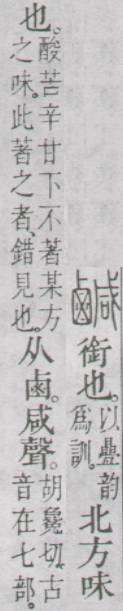 鹹銜也。以疊韵爲訓。北方味
也。酸苦辛甘下不著某方之味。此著之者、錯見也。从鹵。咸聲。胡毚切。古音在七部。